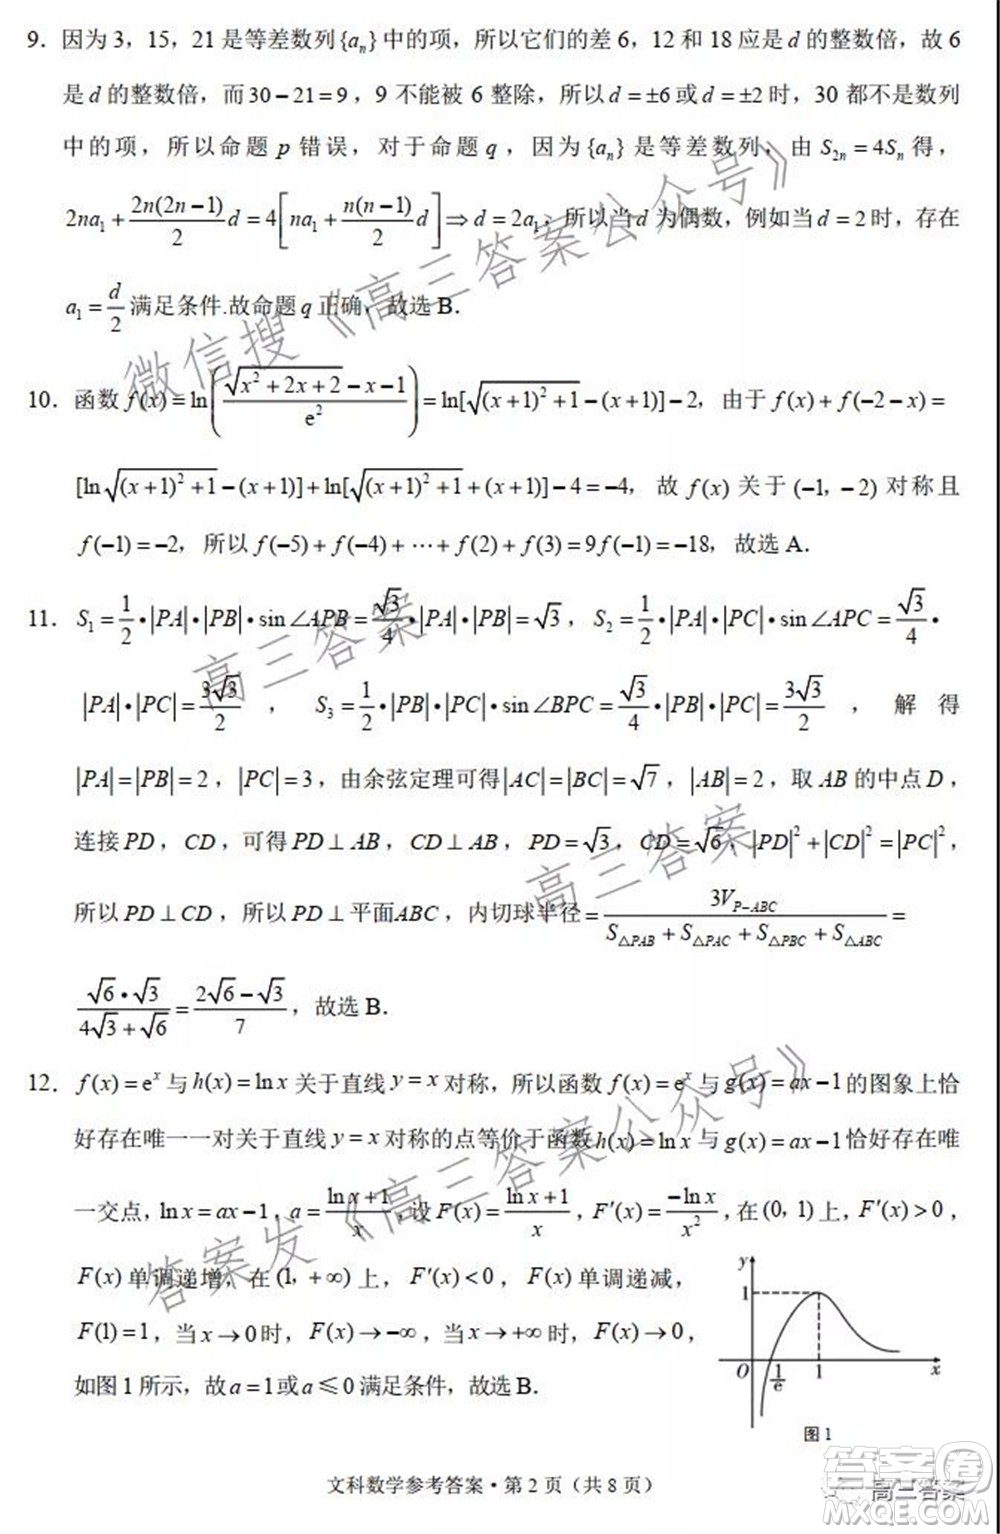 9．因为 3，15，21 是等差数列{aₙ}中的项，所以它们的差 6，12 和 18 应是 d 的整数倍，故 6
是 d 的整数倍，而 30－21＝9，9 不能被 6 整除，所以 d＝±6 或 d＝±2 时，30 都不是数列
中的项，所以命题 p 错误，对于命题 q，因为{aₙ}是等差数列，由 S₂ₙ＝4Sₙ 得，
2na₁+\frac{2n(2n-1)}{2}d=4[na₁+\frac{n(n-1)}{2}d]⇒d=2a₁，所以当 d 为偶数，例如当 d＝2 时，存在
a₁=\frac{d}{2}满足条件.故命题 q 正确，故选 B．
10．函数 f(x)=ln(\frac{\sqrt{x²+2x+2}-x-1}{e²})=ln[\sqrt{(x+1)²+1}-(x+1)]-2，由于 f(x)+f(-2-x)=
[ln\sqrt{(x+1)²+1}-(x+1)]+ln[\sqrt{(x+1)²+1}+(x+1)]-4=-4，故 f(x) 关于 (-1，-2) 对称且
f(-1)=-2，所以 f(-5)+f(-4)+⋯+f(2)+f(3)=9f(-1)=-18，故选 A．
11．S₁=\frac{1}{2}•|PA|•|PB|•sin∠APB=\frac{\sqrt{3}}{4}•|PA|•|PB|=\sqrt{3}，S₂=\frac{1}{2}•|PA|•|PC|•sin∠APC=\frac{\sqrt{3}}{4}•
|PA|•|PC|=\frac{3\sqrt{3}}{2}，S₃=\frac{1}{2}•|PB|•|PC|•sin∠BPC=\frac{\sqrt{3}}{4}•|PB|•|PC|=\frac{3\sqrt{3}}{2}，解得
|PA|=|PB|=2，|PC|=3，由余弦定理可得|AC|=|BC|=\sqrt{7}，|AB|=2，取 AB 的中点 D，
连接 PD，CD，可得 PD⊥AB，CD⊥AB，PD=\sqrt{3}，CD=\sqrt{6}，|PD|²+|CD|²=|PC|²，
所以 PD⊥CD，所以 PD⊥平面ABC，内切球半径=\frac{3V_{P-ABC}}{S_{△PAB}+S_{△PAC}+S_{△PBC}+S_{△ABC}}=
\frac{\sqrt{6}•\sqrt{3}}{4\sqrt{3}+\sqrt{6}}=\frac{2\sqrt{6}-\sqrt{3}}{7}，故选 B．
12．f(x)=eˣ 与 h(x)=ln x 关于直线 y=x 对称，所以函数 f(x)=eˣ 与 g(x)=ax-1 的图象上恰
好存在唯一一对关于直线 y=x 对称的点等价于函数 h(x)=ln x 与 g(x)=ax-1 恰好存在唯
一交点，ln x=ax-1，a=\frac{ln x+1}{x}，设 F(x)=\frac{ln x+1}{x}，F′(x)=\frac{-ln x}{x²}，在 (0，1) 上，F′(x)>0，
F(x) 单调递增，在 (1，+∞) 上，F′(x)<0，F(x) 单调递减，
F(1)=1，当 x→0 时，F(x)→-∞，当 x→+∞ 时，F(x)→0，
如图 1 所示，故 a=1 或 a≤0 满足条件，故选 B．
y
1
O
\frac{1}{e}
1
x
图 1
文科数学参考答案·第 2 页（共 8 页）
微信搜《高三答案公众号》
高三答案
高三答案
答案发《高三答案公众号》
高三答案
答案圈
MXQE.COM